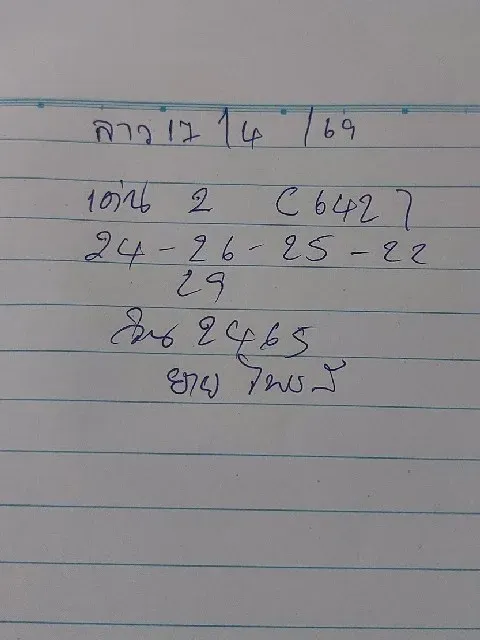 ลาว 17 / 4 / 69
เด่น 2 (642)
24 - 26 - 25 - 22
29
วิน 2465
ยาย